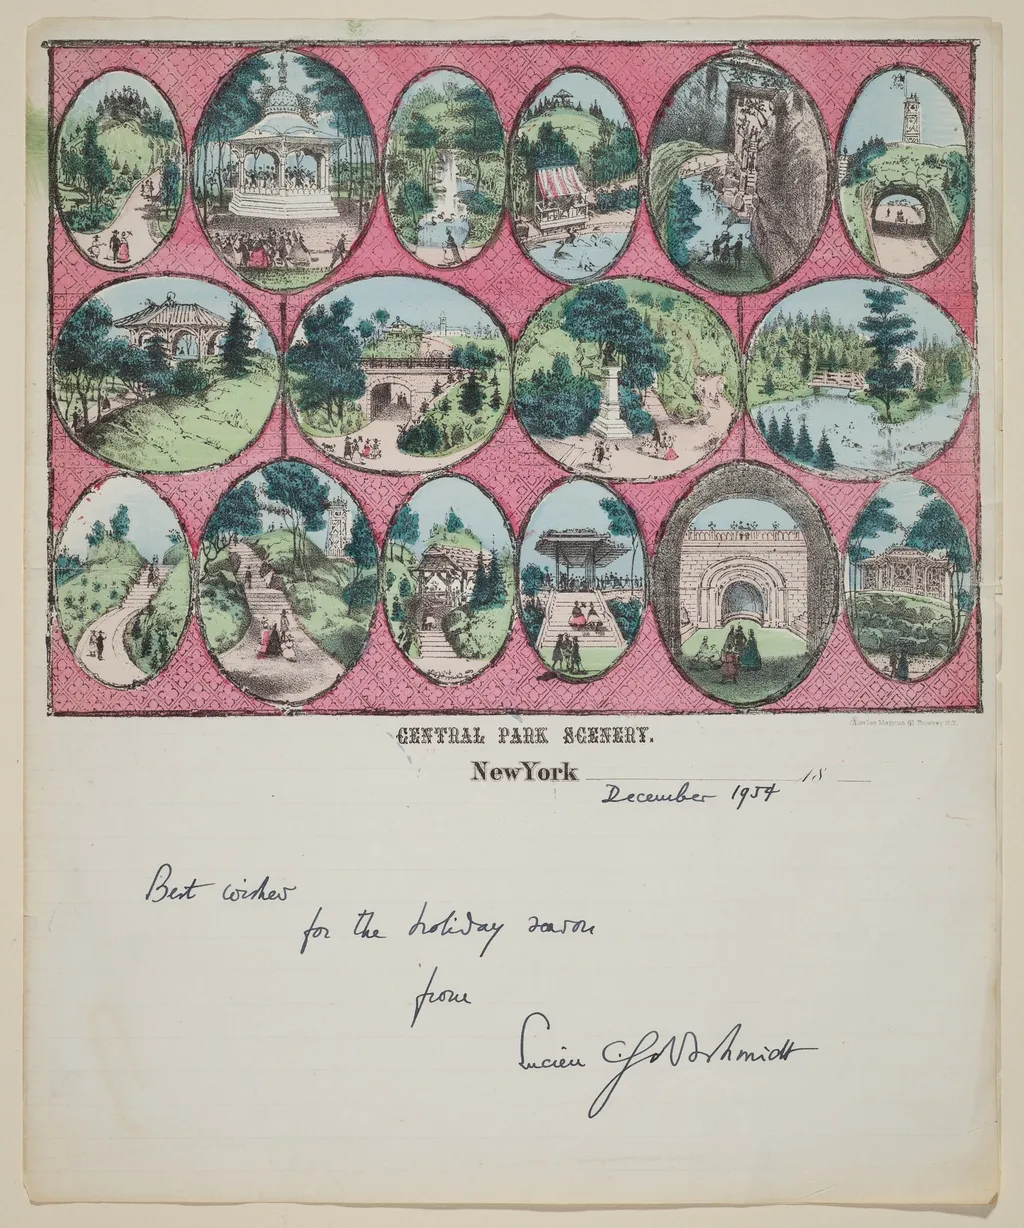 Charles Magnus
CENTRAL PARK SCENERY.
New York 18
December 1954
Best wishes
for the holiday season
from
Lucien Goldschmidt